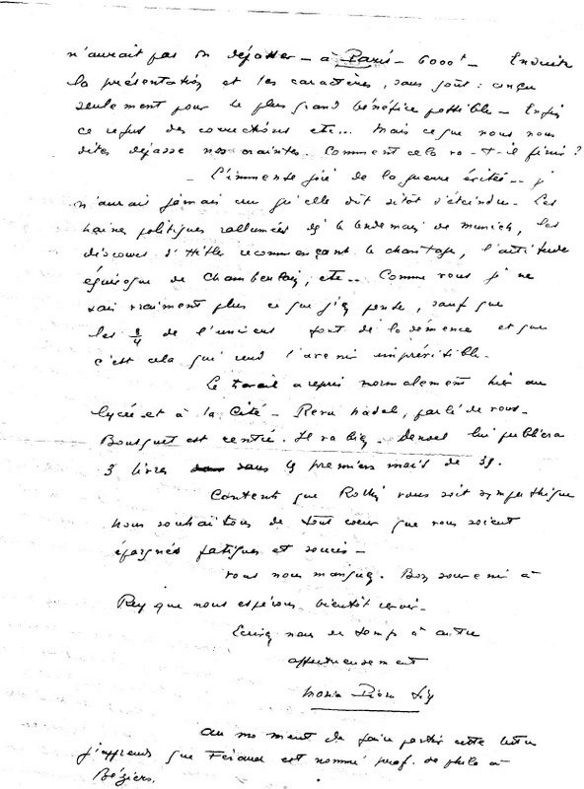 n'aurait pas dû dépasser — à Paris — 6000 f — Ensuite
la présentation et les caractères, sans goût : conçu
seulement pour le plus grand bénéfice possible — Enfin
ce refus des corrections etc... Mais ce que vous nous
dites dépasse nos craintes. Comment cela va-t-il finir ?
— L'immense joie de la guerre évitée... je
n'aurais jamais cru qu'elle dût sitôt s'éteindre. Les
haines politiques rallumées dès le lendemain de Munich, les
discours d'Hitler recommençant le chantage, l'attitude
équivoque de Chamberlain, etc... Comme vous je ne
sais vraiment plus ce que j'en pense, sauf que
les 3/4 de l'univers sont de la démence et que
c'est cela qui rend l'avenir imprévisible.
Le travail a repris normalement hier au
lycée et à la Cité — Revu Nadal, parlé de vous.
Bousquet est rentré. Il va bien. Denoel lui publiera
3 livres dans les premiers mois de 39.
Content que vous soit sympathique
Nous souhaitons de tout coeur que vous soient
épargnés fatigues et soucis —
Vous nous manquez. Bon souvenir à
Rey que nous espérons bientôt revoir.
Ecrivez nous de temps à autre
affectueusement
Au moment de faire partir cette lettre
j'apprends que est nommé prof. de philo à
Béziers.